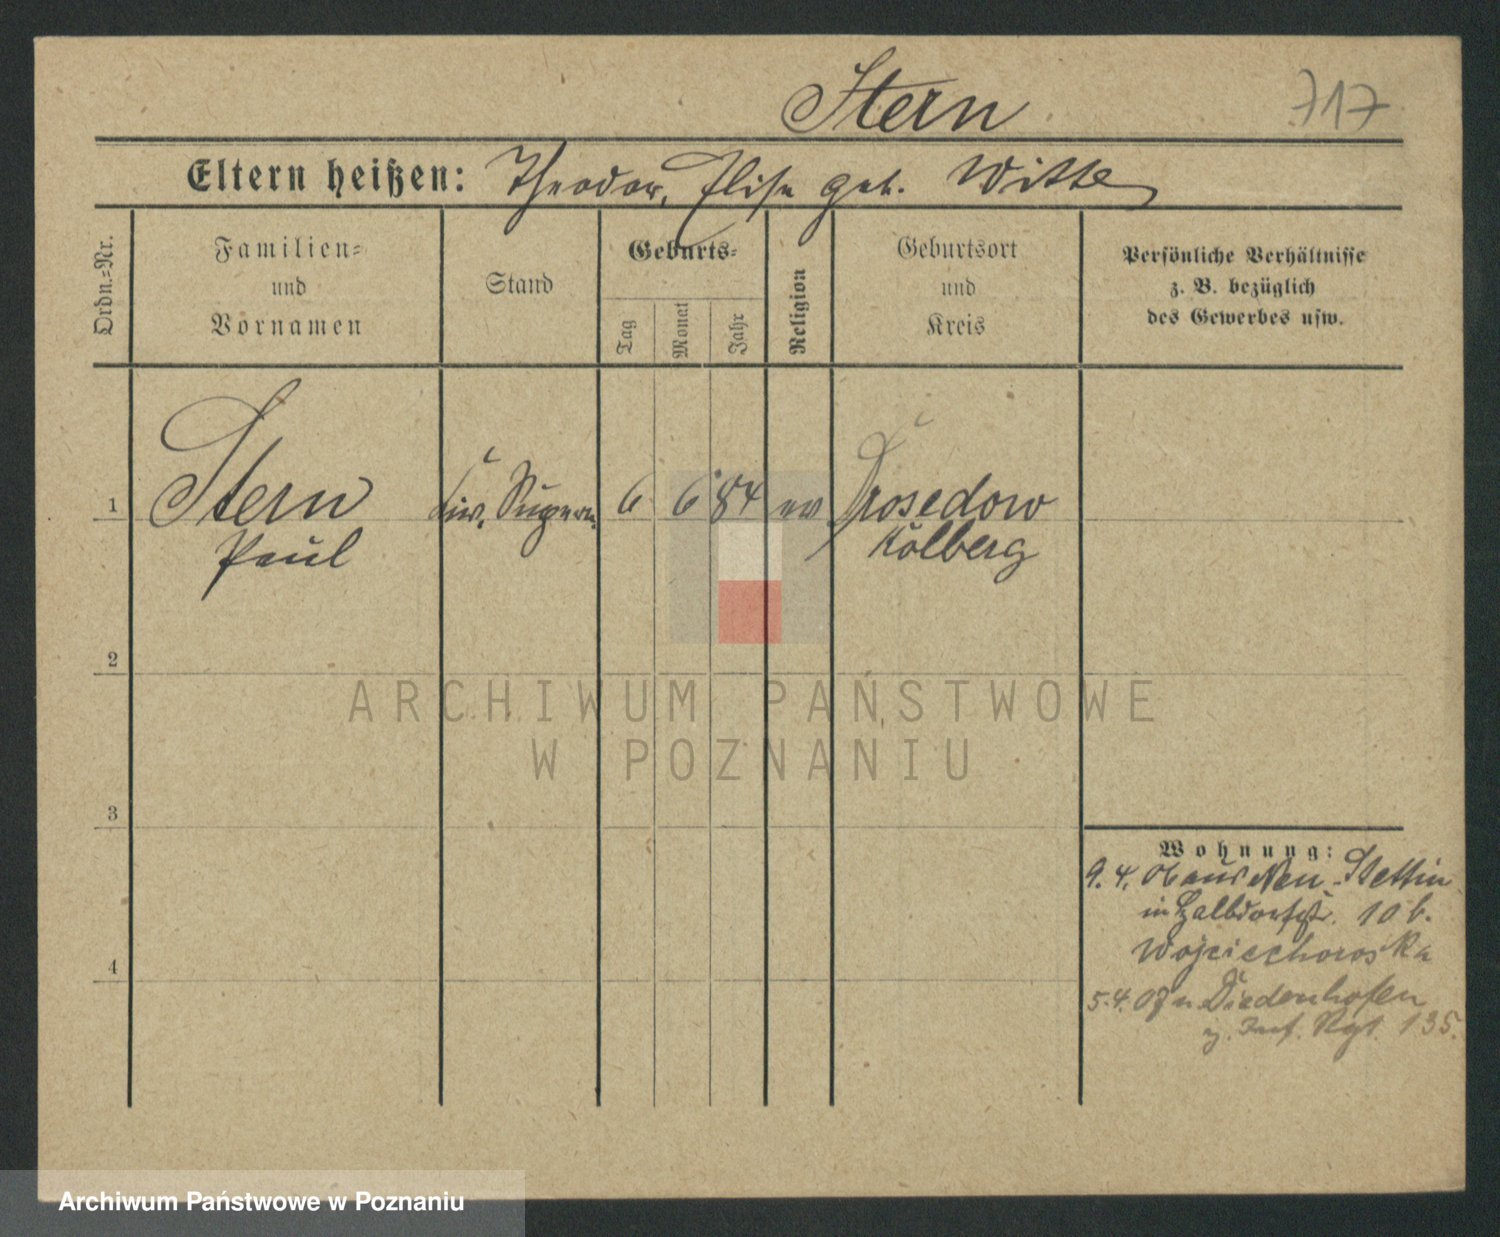 Stern
717
Eltern heißen: Theodor, Elise geb. Witte
Ordn.=Nr.
Familien=
und
Vornamen
Stand
Geburts=
Tag
Monat
Jahr
Religion
Geburtsort
und
Kreis
Persönliche Verhältnisse
z. B. bezüglich
des Gewerbes usw.
1
Stern
Paul
Supern.
6
6
84
ev
Drosedow
Kolberg
2
3
4
ARCHIWUM PAŃSTWOWE
W POZNANIU
Wohnung:
9.4.06 aus Neu-Stettin
in Halbdorfstr. 10 b.
Wojciechowska
5.4.07 n. Diedenhofen
z. Inf. Rgt. 135.
Archiwum Państwowe w Poznaniu